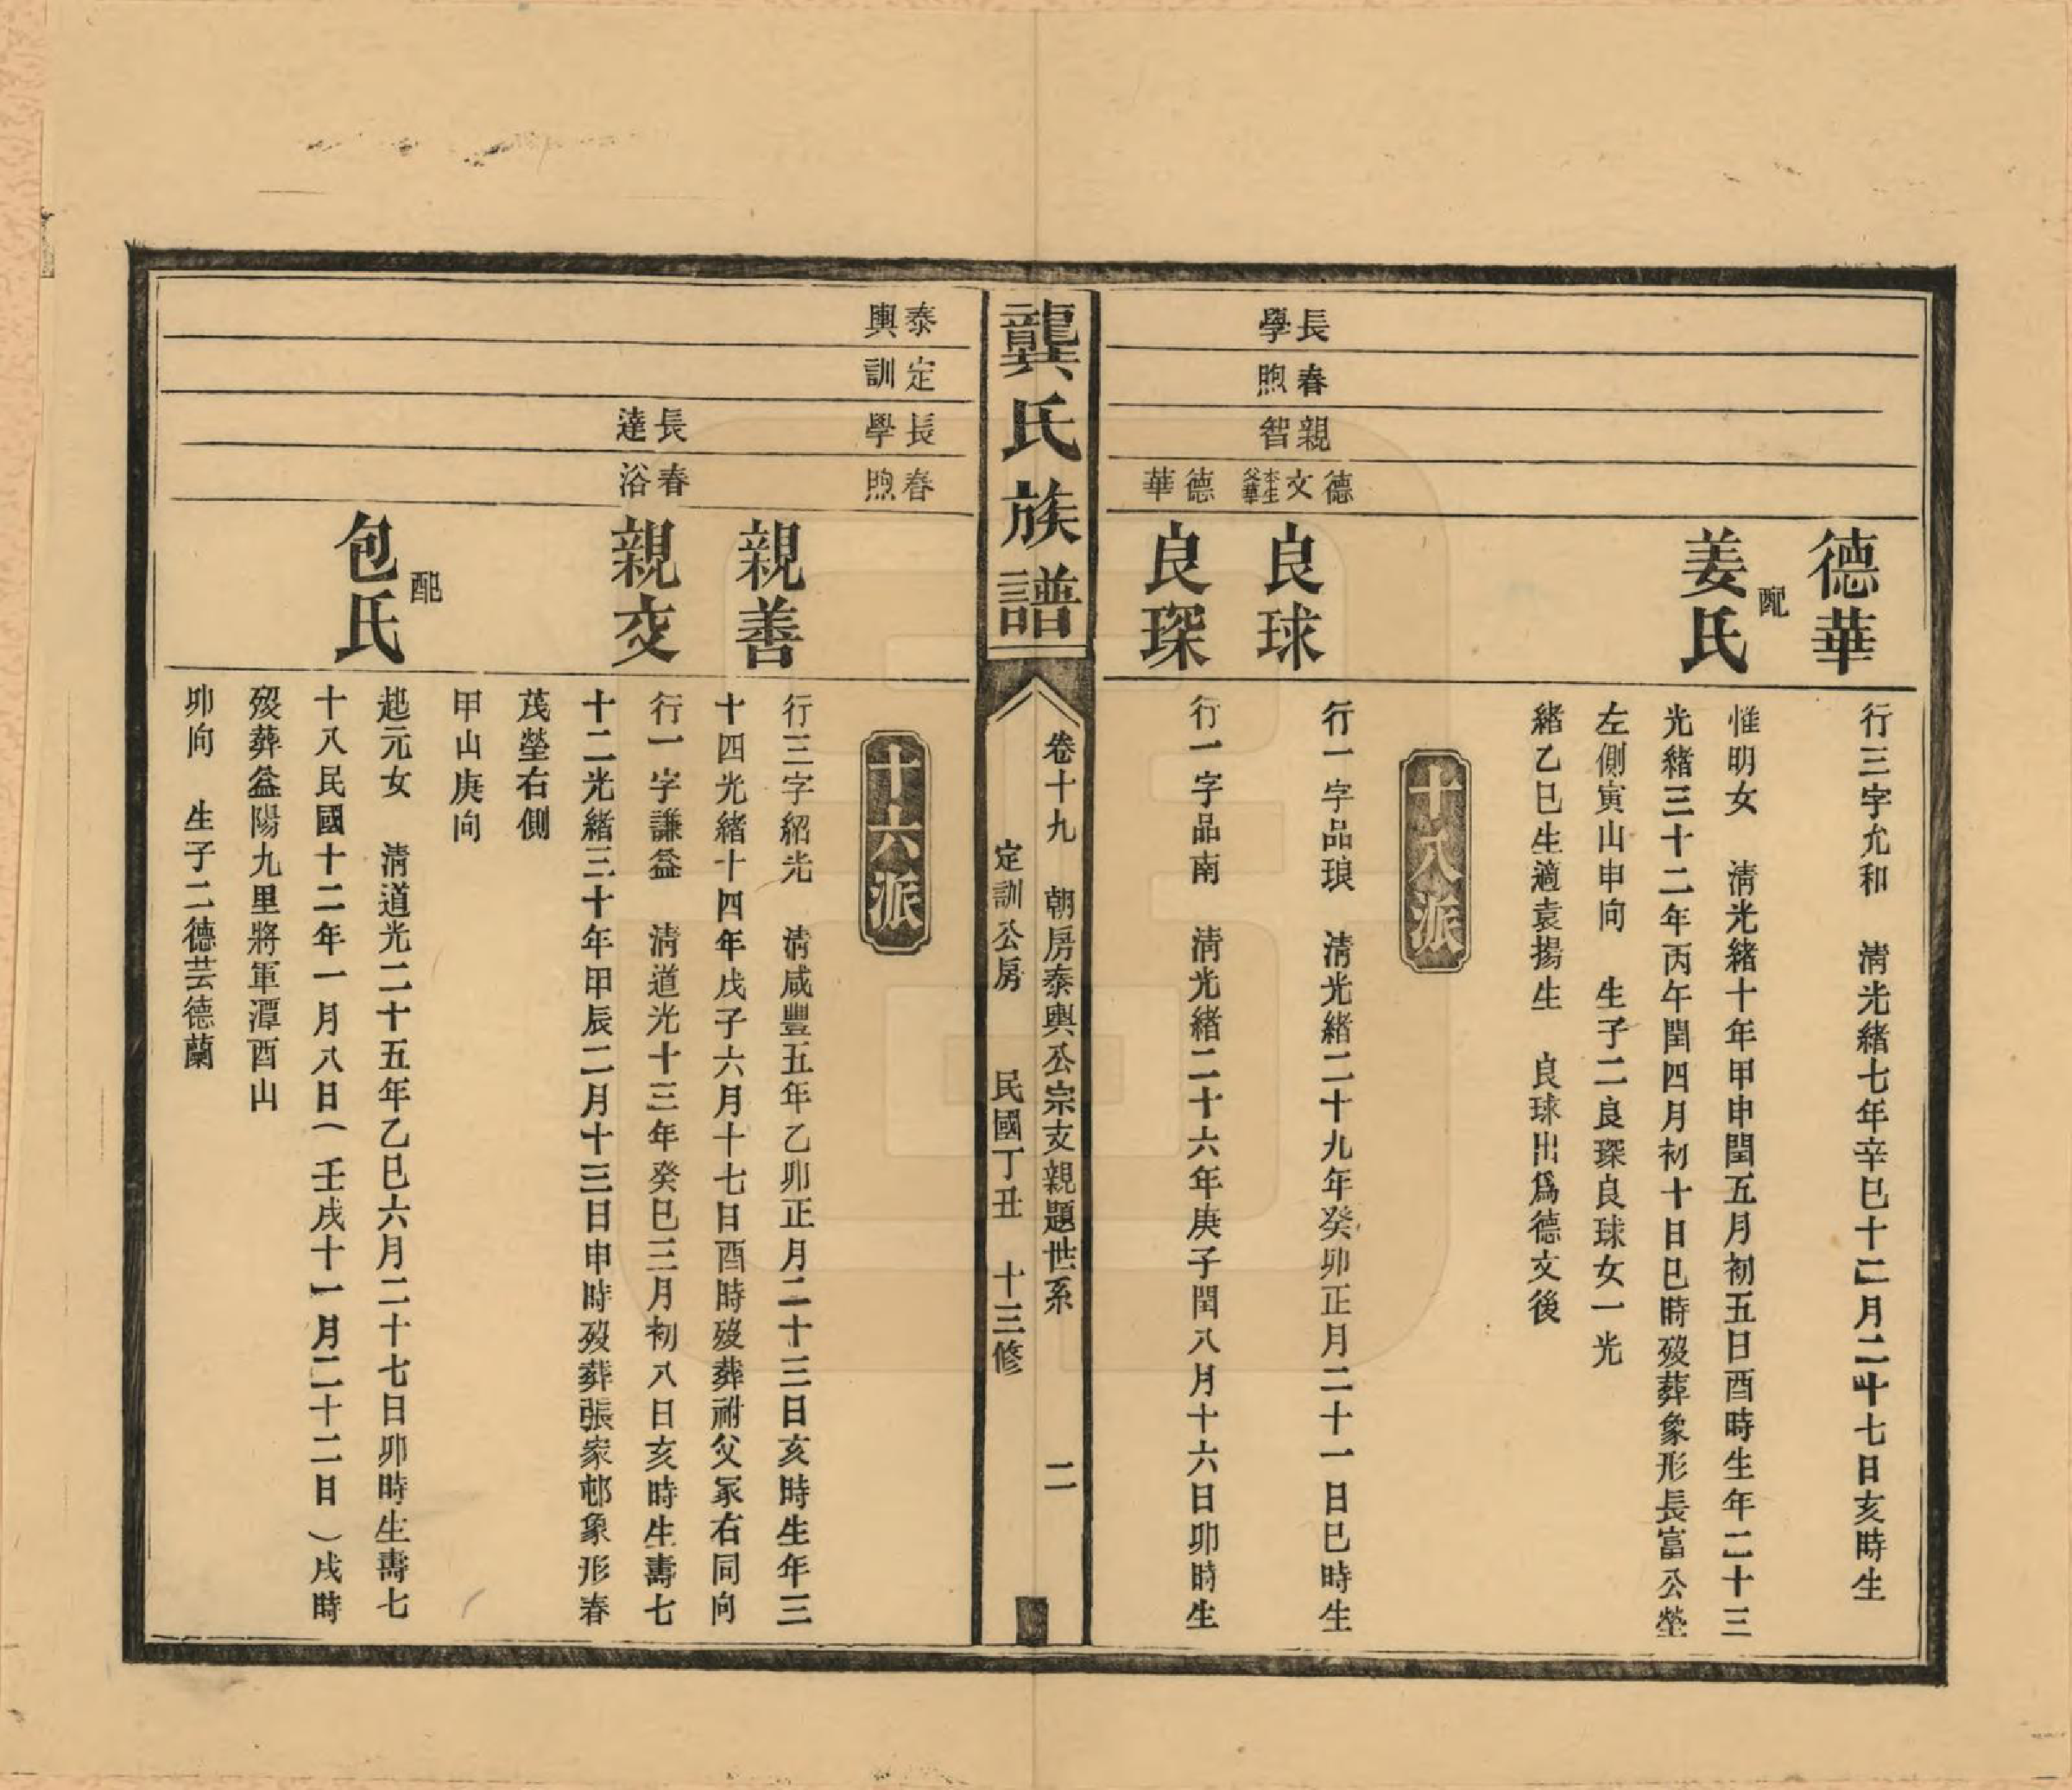 德華
行三字允和　清光緒七年辛巳十二月二十七日亥時生
配
姜氏
惟明女　清光緒十年甲申閏五月初五日酉時生年二十三
光緒三十二年丙午閏四月初十日巳時歿葬象形長富公塋
左側寅山申向　生子二良琛良球女一光
緒乙巳生適袁揚生　良球出爲德文後
十八派
長學
春煦
親智
德文
本生父華
良球
行一字品琅　清光緒二十九年癸卯正月二十一日巳時生
德華
良琛
行一字品南　清光緒二十六年庚子閏八月十六日卯時生
龔氏族譜
卷十九　朝房泰輿公宗支親題世系　二
定訓公房　民國丁丑　十三修
泰輿
定訓
長學
春煦
十六派
親善
行三字紹光　清咸豐五年乙卯正月二十三日亥時生年三
十四光緒十四年戊子六月十七日酉時歿葬祔父冢右同向
長達
春浴
親交
行一字謙益　清道光十三年癸巳三月初八日亥時生壽七
十二光緒三十年甲辰二月十三日申時歿葬張家邨象形春
茂塋右側
甲山庚向
配
包氏
起元女　清道光二十五年乙巳六月二十七日卯時生壽七
十八民國十二年一月八日(壬戌十一月二十二日)戌時
歿葬益陽九里將軍潭酉山
卯向　生子二德芸德蘭